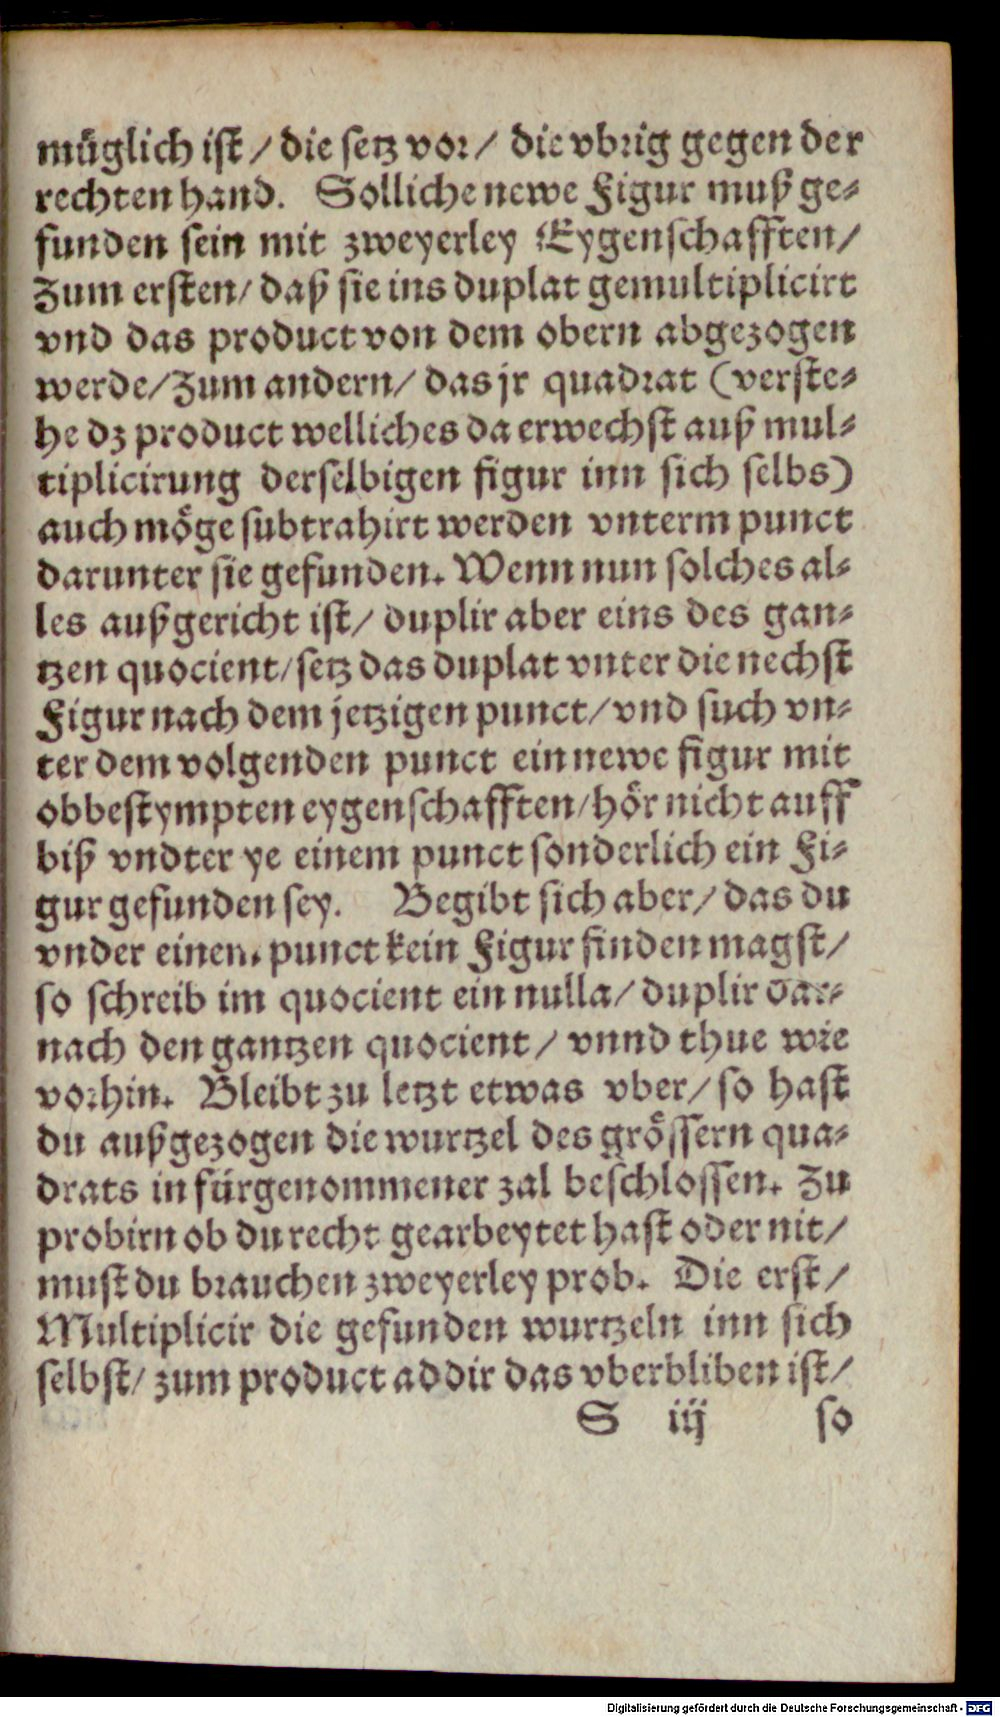 müglich ist / die setz vor / die vbrig gegen der
rechten hand. Solliche newe Figur muß ge-
funden sein mit zweyerley Eygenschafften /
Zum ersten / daß sie ins duplat gemultiplicirt
vnd das product von dem obern abgezogen
werde / Zum andern / das jr quadrat (verste-
he dz product welliches da erwechst auß mul-
tiplicirung derselbigen figur inn sich selbs)
auch möge subtrahirt werden vnterm punct
darunter sie gefunden. Wenn nun solches al-
les außgericht ist / duplir aber eins des gan-
tzen quocient / setz das duplat vnter die nechst
Figur nach dem jetzigen punct / vnd such vn-
ter dem volgenden punct ein newe figur mit
obbestympten eygenschafften / hör nicht auff
biß vndter ye einem punct sonderlich ein Fi-
gur gefunden sey. Begibt sich aber / das du
vnder einem punct kein Figur finden magst /
so schreib im quocient ein nulla / duplir dar-
nach den gantzen quocient / vnnd thue wie
vorhin. Bleibt zu letzt etwas vber / so hast
du außgezogen die wurtzel des grössern qua-
drats in fürgenommener zal beschlossen. Zu
probirn ob du recht gearbeytet hast oder nit /
must du brauchen zweyerley prob. Die erst /
Multiplicir die gefunden wurtzeln inn sich
selbst / zum product addir das vberbliben ist /
S iij so
Digitalisierung gefördert durch die Deutsche Forschungsgemeinschaft - DFG